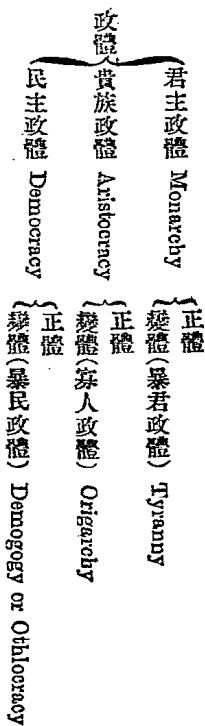 政體
君主政體 Monarchy
正體
變體(暴君政體) Tyranny
貴族政體 Aristocracy
正體
變體(寡人政體) Origarchy
民主政體 Democracy
正體
變體(暴民政體) Demogogy or Othlocracy